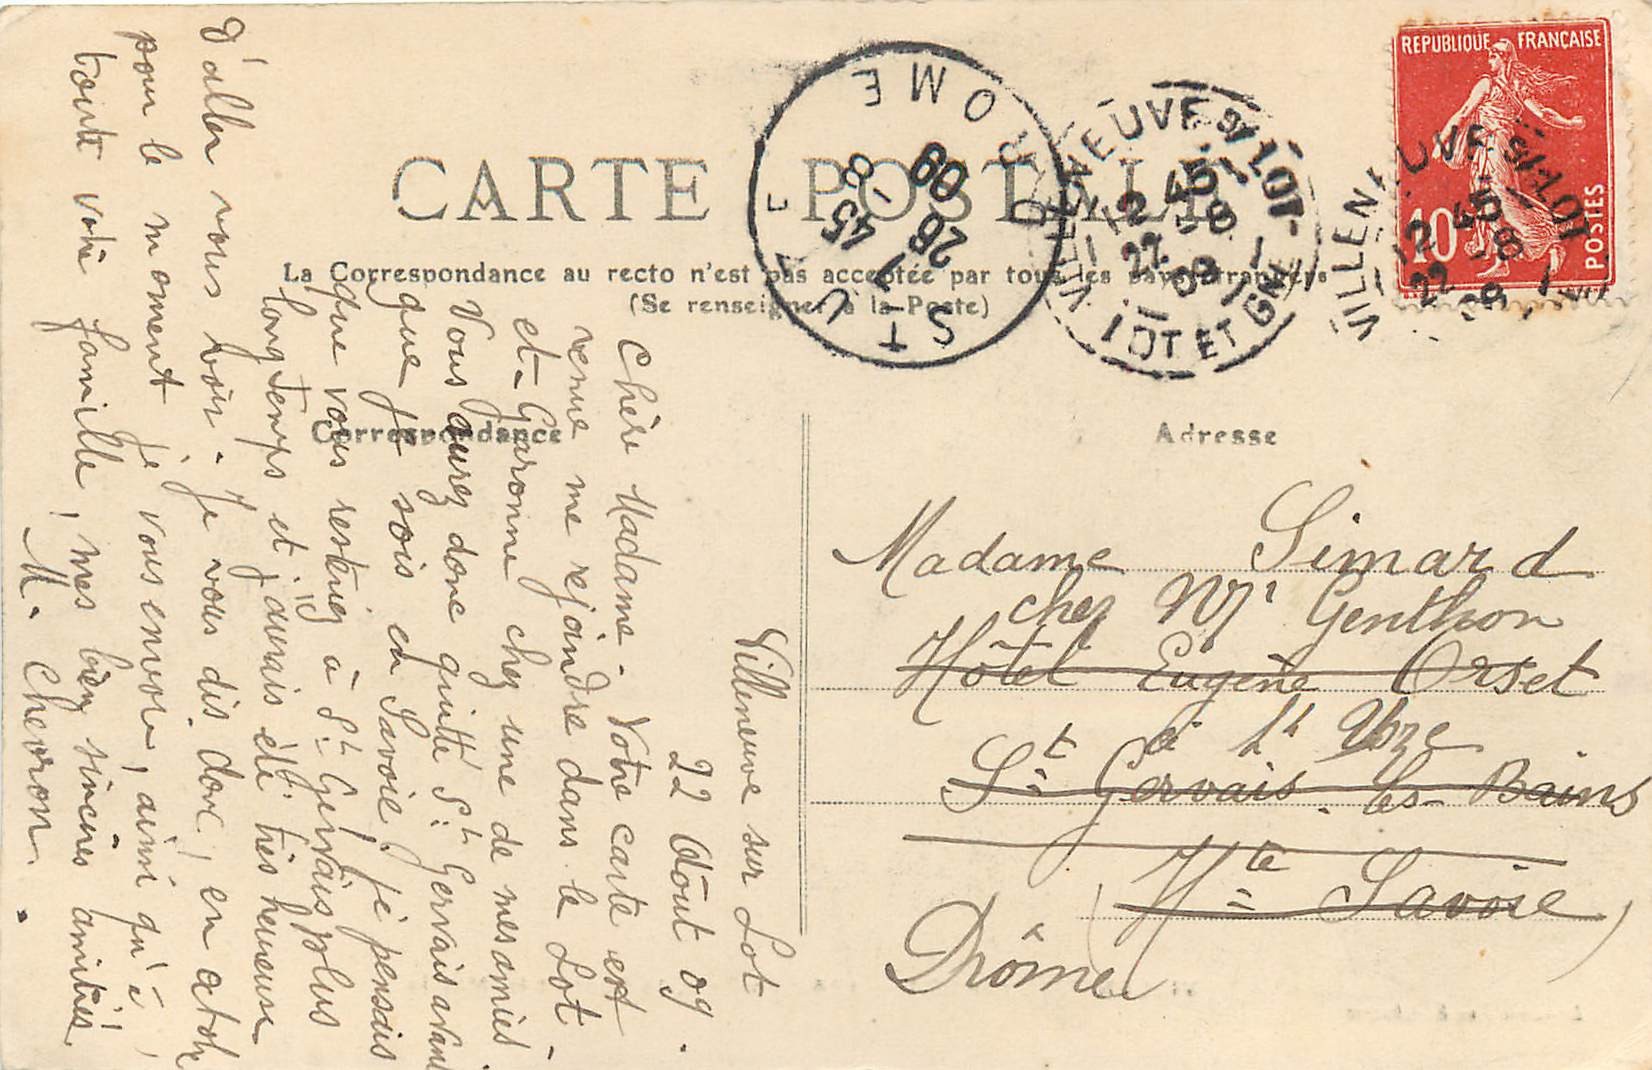 CARTE POSTALE
La Correspondance au recto n'est pas acceptée par tous les pays étrangers
(Se renseigner à la Poste)
Correspondance
Villeneuve sur Lot
22 Août 09.
Chère Madame. Votre carte est
venue me rejoindre dans le Lot-
et-Garonne chez une de mes amies
Vous aurez donc quitté St Gervais avant
que je sois en Savoie! je pensais
que vous restiez à St Gervais plus
longtemps et j'aurais été très heureuse
d'aller vous voir. Je vous dis donc, en
pour le moment je vous envoie, ainsi qu'à
toute votre famille, mes bien sincères amitiés
M. Chevron.
Adresse
Madame Simard
chez Mr Genthon
Hôtel Eugène Orset
à St Uze
St Gervais-les-Bains
Hte Savoie
Drôme
REPUBLIQUE FRANÇAISE
10
POSTES
VILLENEUVE S/ LOT
12 45
22 -8
09
LOT ET GNE
VILLENEUVE S/ LOT
12 45
22 -8
09
ST UZE
DROME
7 45
26 -8
09